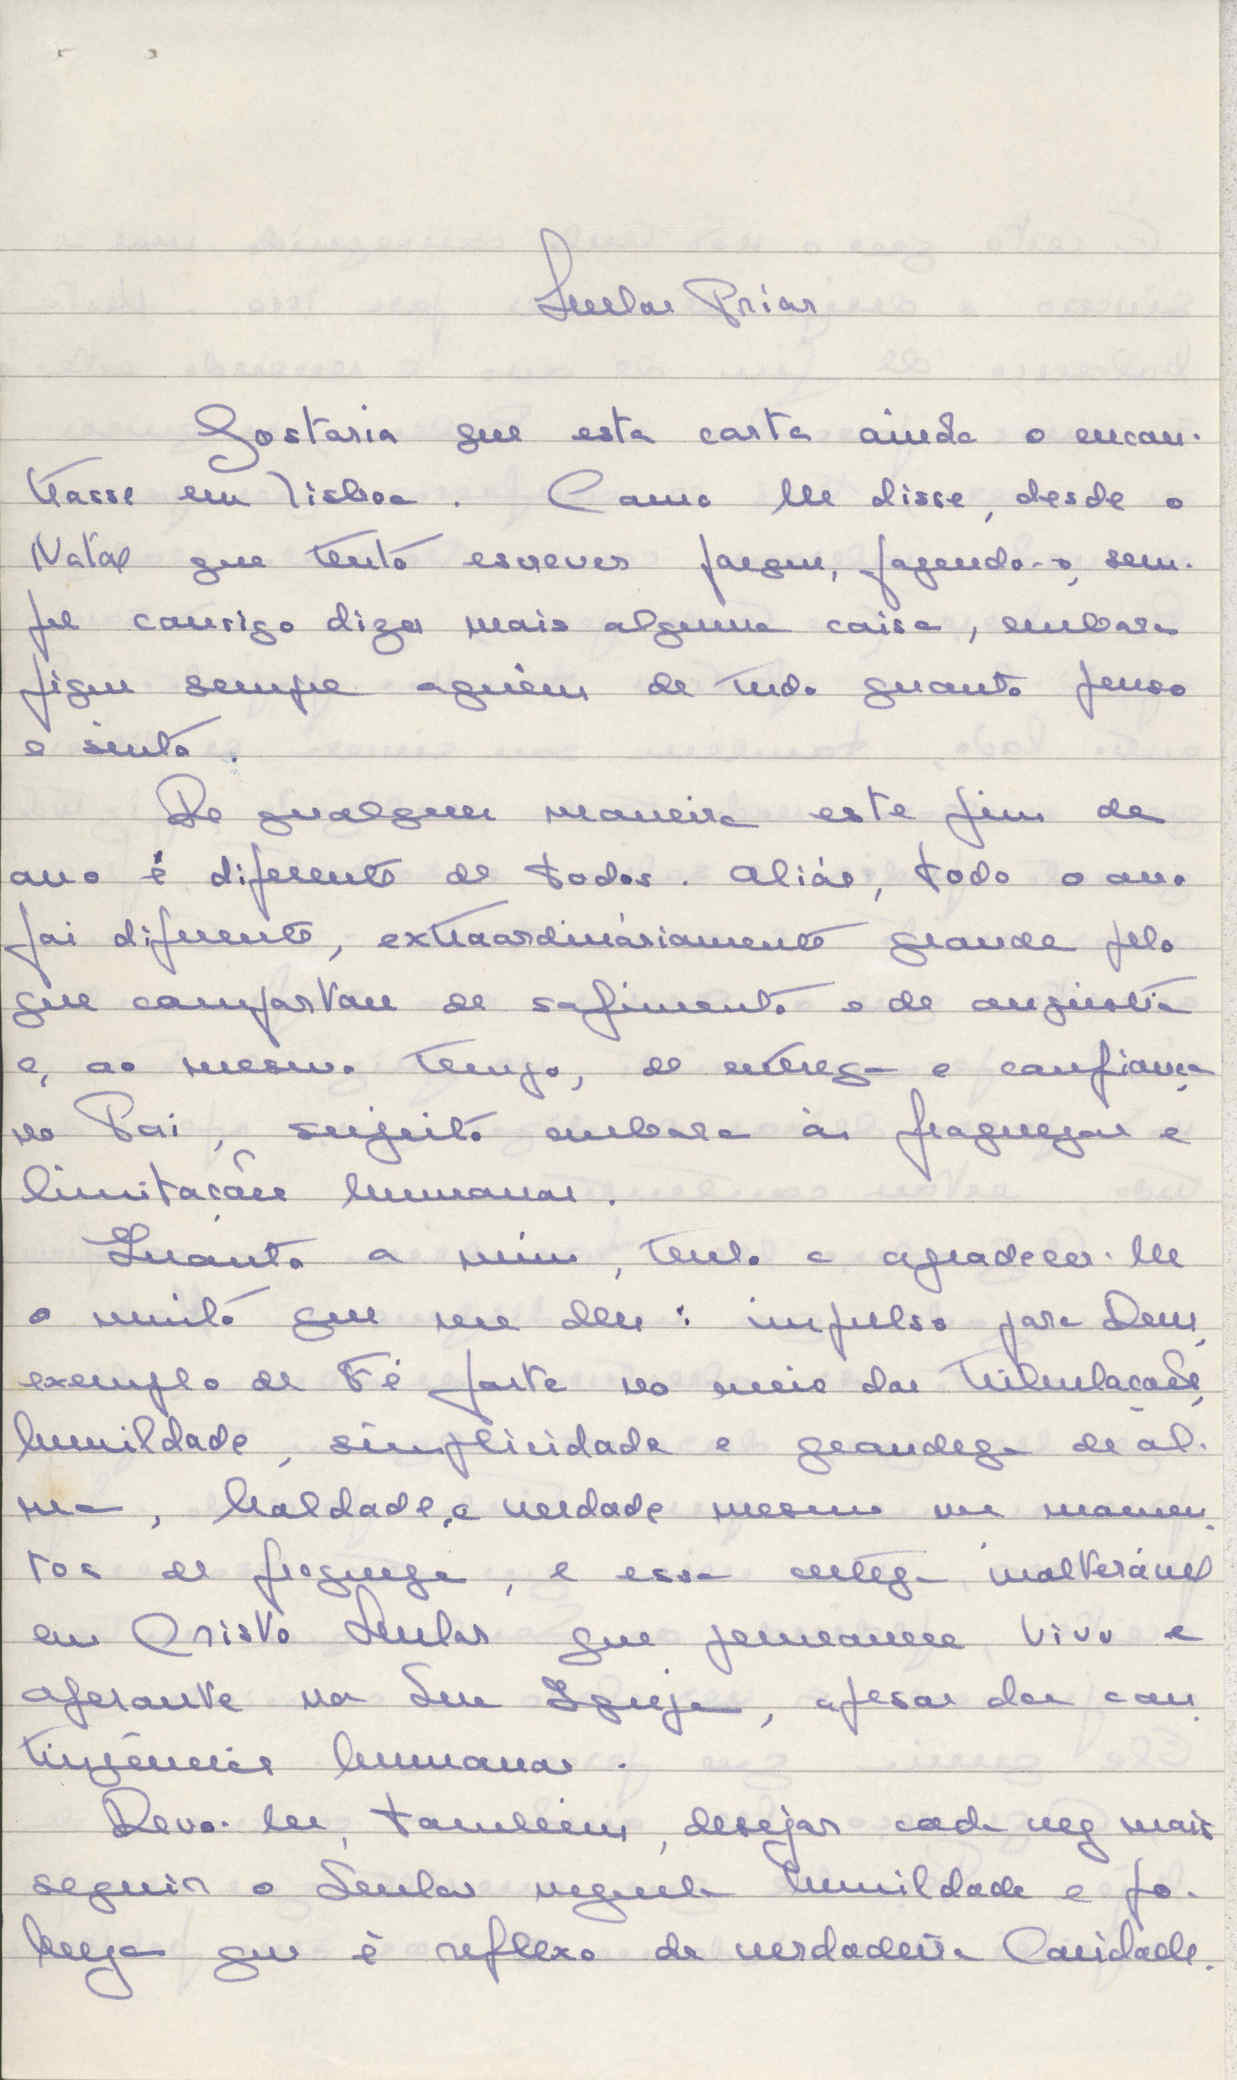 Senhor Prior
Gostaria que esta carta ainda o encon-
trasse em Lisboa. Como lhe disse, desde o
Natal que tento escrever porque, fazendo-o, sem-
pre consigo dizer mais alguma coisa, embora
fique sempre aquém de tudo quanto penso
e sinto.
De qualquer maneira este fim de
ano é diferente de todos. Aliás, todo o ano
foi diferente, extraordinàriamente grande pelo
que comportou de sofrimento e de angústia
e, ao mesmo tempo, de entrega e confiança
no Pai, sujeito embora às fraquezas e
limitações humanas.
Quanto a mim, tenho a agradecer-lhe
o muito que me deu: impulso para Deus,
exemplo de Fé forte no meio das tribulações,
humildade, simplicidade e grandeza de al-
ma, lealdade, e verdade mesmo nos momen-
tos de fraqueza, e essa certeza inalterável
em Cristo Senhor que permanece vivo e
operante na Sua Igreja, apesar das con-
tingências humanas.
Devo-lhe, também, desejar cada vez mais
seguir o Senhor naquela humildade e po-
breza que é reflexo da verdadeira Caridade.